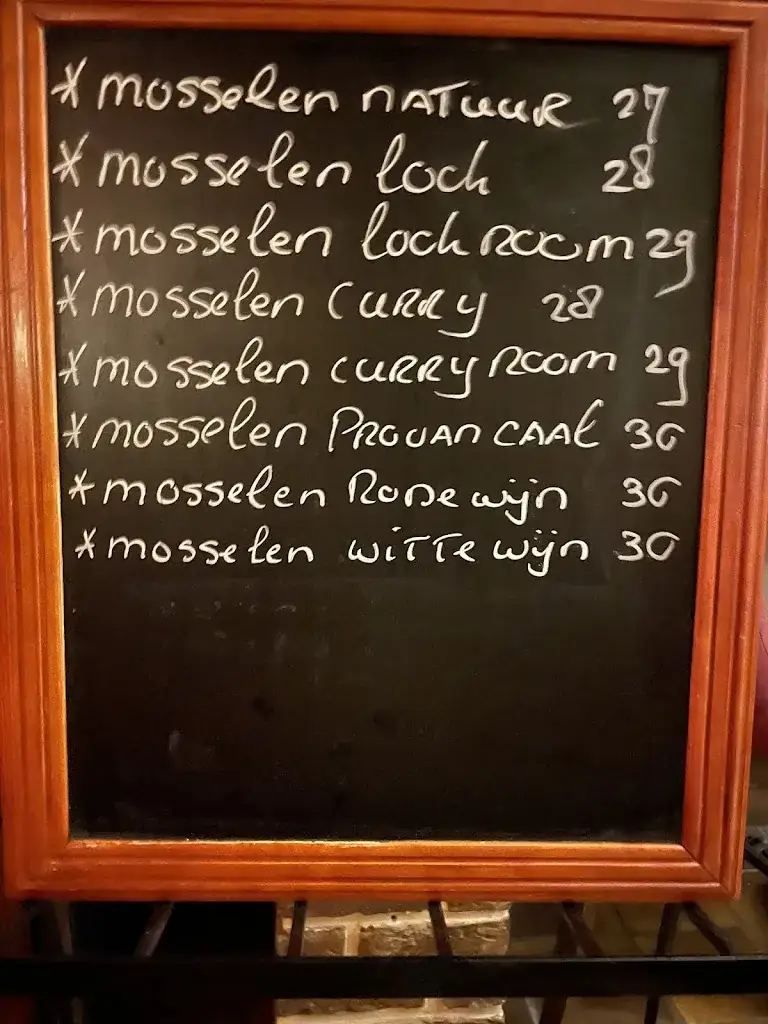 * mosselen NATUUR 27
* mosselen look 28
* mosselen look ROOM 29
* mosselen CURRY 28
* mosselen CURRY ROOM 29
* mosselen PROVANCAAL 30
* mosselen RODE wijn 30
* mosselen WITTE wijn 30